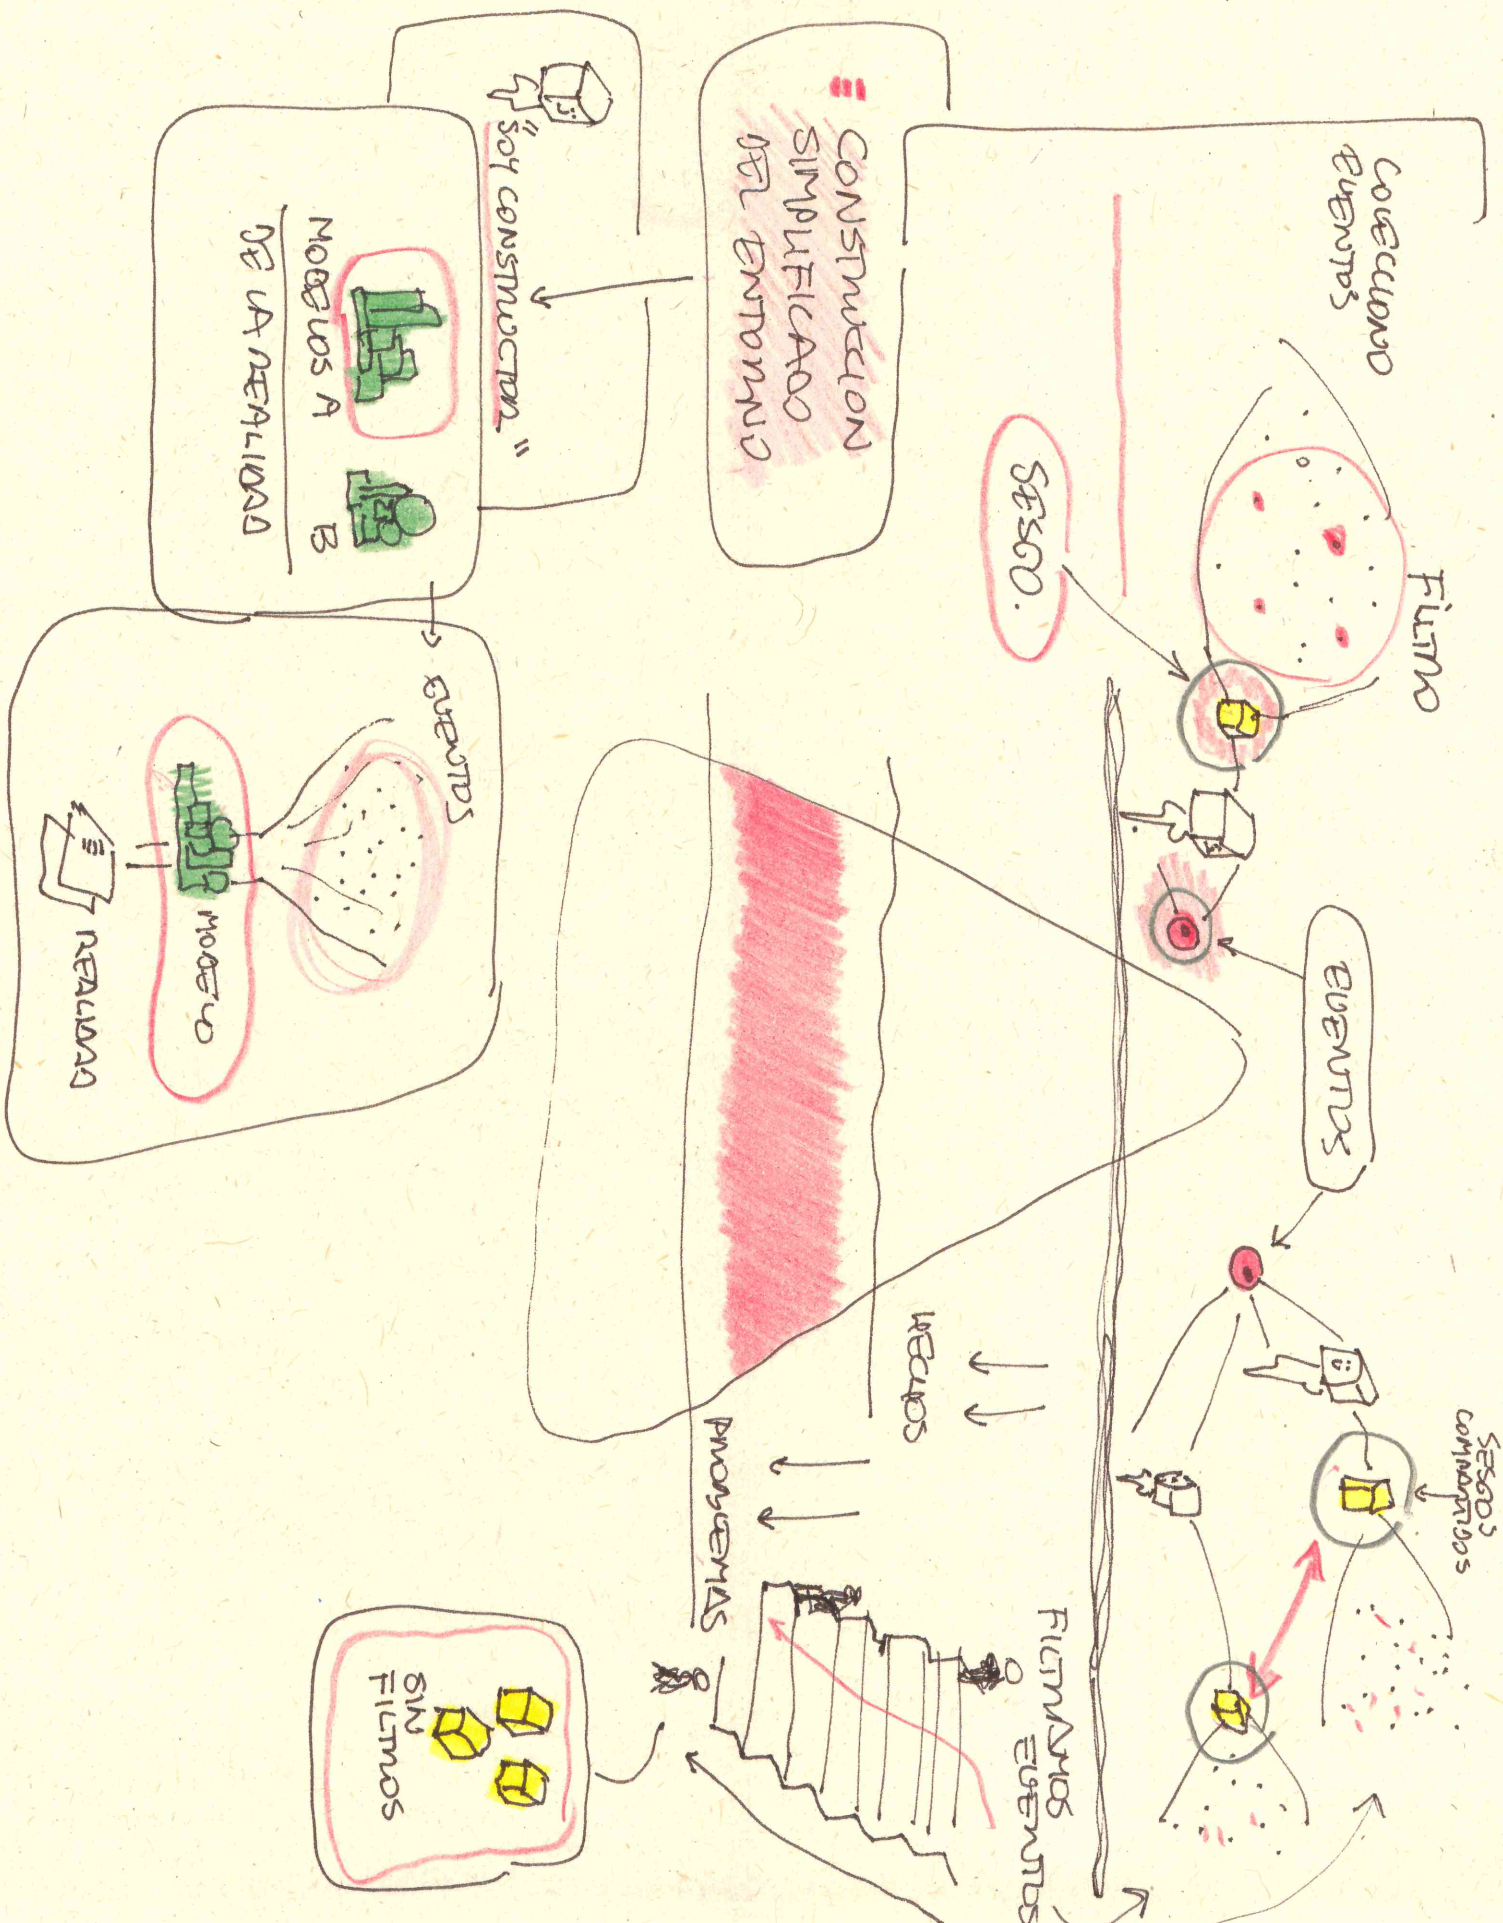 COLECCIONO
EVENTOS
FILTRO
SESGO.
EVENTOS
SESGOS
COMPARTIDOS
CONSTRUCCION
SIMPLIFICADO
DEL ENTORNO
"SOY CONSTRUCTOR"
MODELOS A B
DE LA REALIDAD
EVENTOS
MODELO
REALIDAD
HECHOS
PROBLEMAS
FILTRAMOS
EVENTOS
SIN
FILTROS